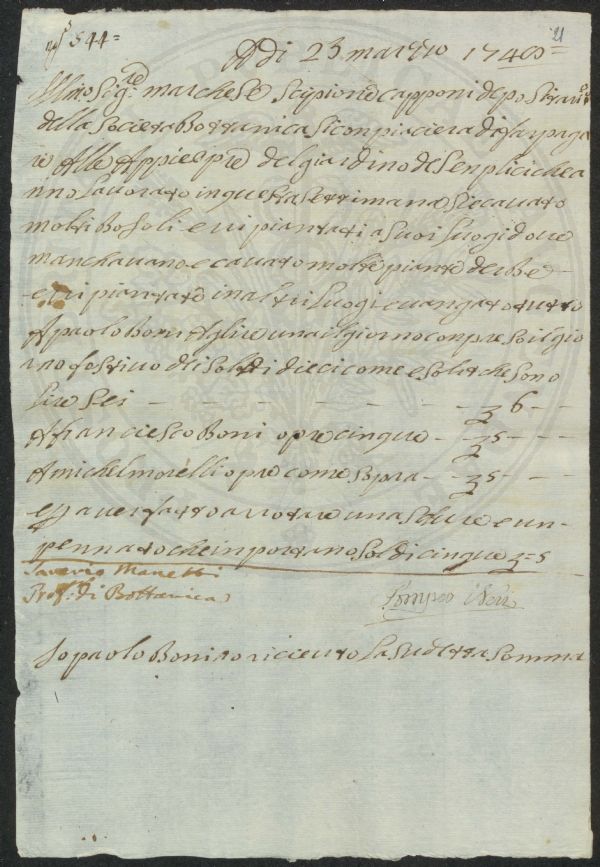 544=
21
A di 23 marzo 1740=
Ill.mo Sig.re marchese Scipione Capponi depositario
della Societa Bottanica si conpiaciera di far paga
re Alle Appiè opre del giardino de Senplici che a
nno Lavorato in questa settimana e Sie cavato
molti Bosoli e ripiantati a Suoi Luogi dove
manchavano e cavato molte piante de Be
e ripiantate in altri Luogi e vangato tutto
A paolo Boni A lire una il giorno conpreso il gio
rno festivo di Soldi dieci come e Solito che sono
lire Sei — — — — — — 6 —
A franciesco Boni opre cinque — 5 —
A michel morelli opre come Sopra — 5 —
e p aver fatto arrotare una Schure e un
pennato che inportano Soldi cinque — 5
Saverio Manetti
Prof. di Bottanica
Pompeo Neri
Io paolo Boni o ricieuto La Sudetta Somma